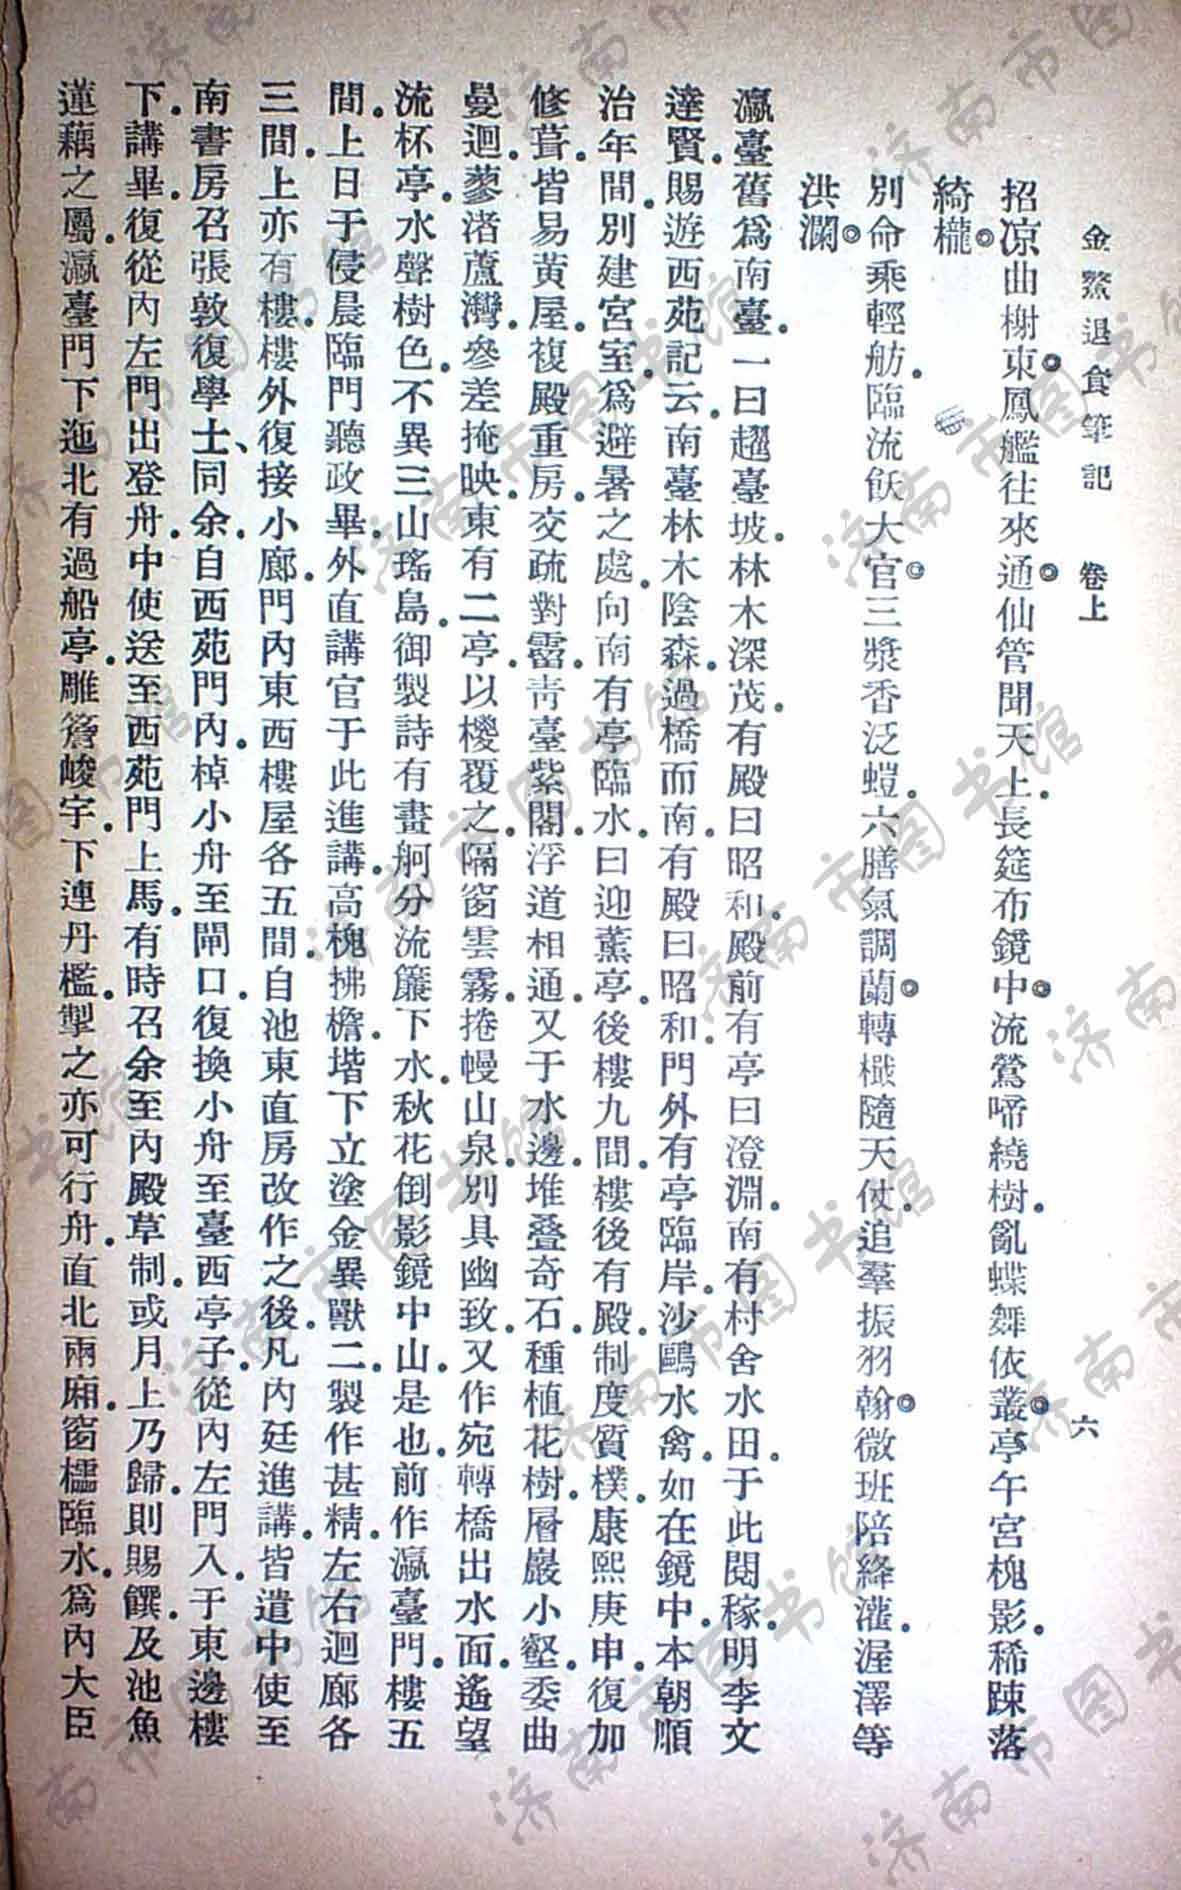 金鰲退食筆記 卷上 六
招凉曲榭東鳳艦往來通仙管聞天上長筵布鏡中流鶯啼繞樹亂蝶舞依叢亭午宮槐影稀疎落
綺櫳
別命乘輕舫臨流飫大官三漿香泛螘六膳氣調蘭轉檝隨天仗追羣振羽翰微班陪絳灌渥澤等
洪瀾
瀛臺舊爲南臺一曰趯臺坡林木深茂有殿曰昭和殿前有亭曰澄淵南有村舍水田于此閱稼明李文
達賢賜遊西苑記云南臺林木陰森過橋而南有殿曰昭和門外有亭臨岸沙鷗水禽如在鏡中本朝順
治年間別建宮室爲避暑之處向南有亭臨水曰迎薰亭後樓九間樓後有殿制度質樸康熙庚申復加
修葺皆易黃屋複殿重房交疏對霤靑臺紫閣浮道相通又于水邊堆叠奇石種植花樹層巖小壑委曲
曼迴蓼渚蘆灣參差掩映東有二亭以椶覆之隔窗雲霧捲幔山泉別具幽致又作宛轉橋出水面遙望
流杯亭水聲樹色不異三山瑤島御製詩有畫舸分流簾下水秋花倒影鏡中山是也前作瀛臺門樓五
間上日于侵晨臨門聽政畢外直講官于此進講高槐拂檐堦下立塗金異獸二製作甚精左右迴廊各
三間上亦有樓樓外復接小廊門內東西樓屋各五間自池東直房改作之後凡內廷進講皆遣中使至
南書房召張敦復學士同余自西苑門內棹小舟至閘口復換小舟至臺西亭子從內左門入于東邊樓
下講畢復從內左門出登舟中使送至西苑門上馬有時召余至內殿草制或月上乃歸則賜饌及池魚
蓮藕之屬瀛臺門下迤北有過船亭雕簷峻宇下連丹檻掣之亦可行舟直北兩廂窗櫺臨水爲內大臣
济南市图书馆